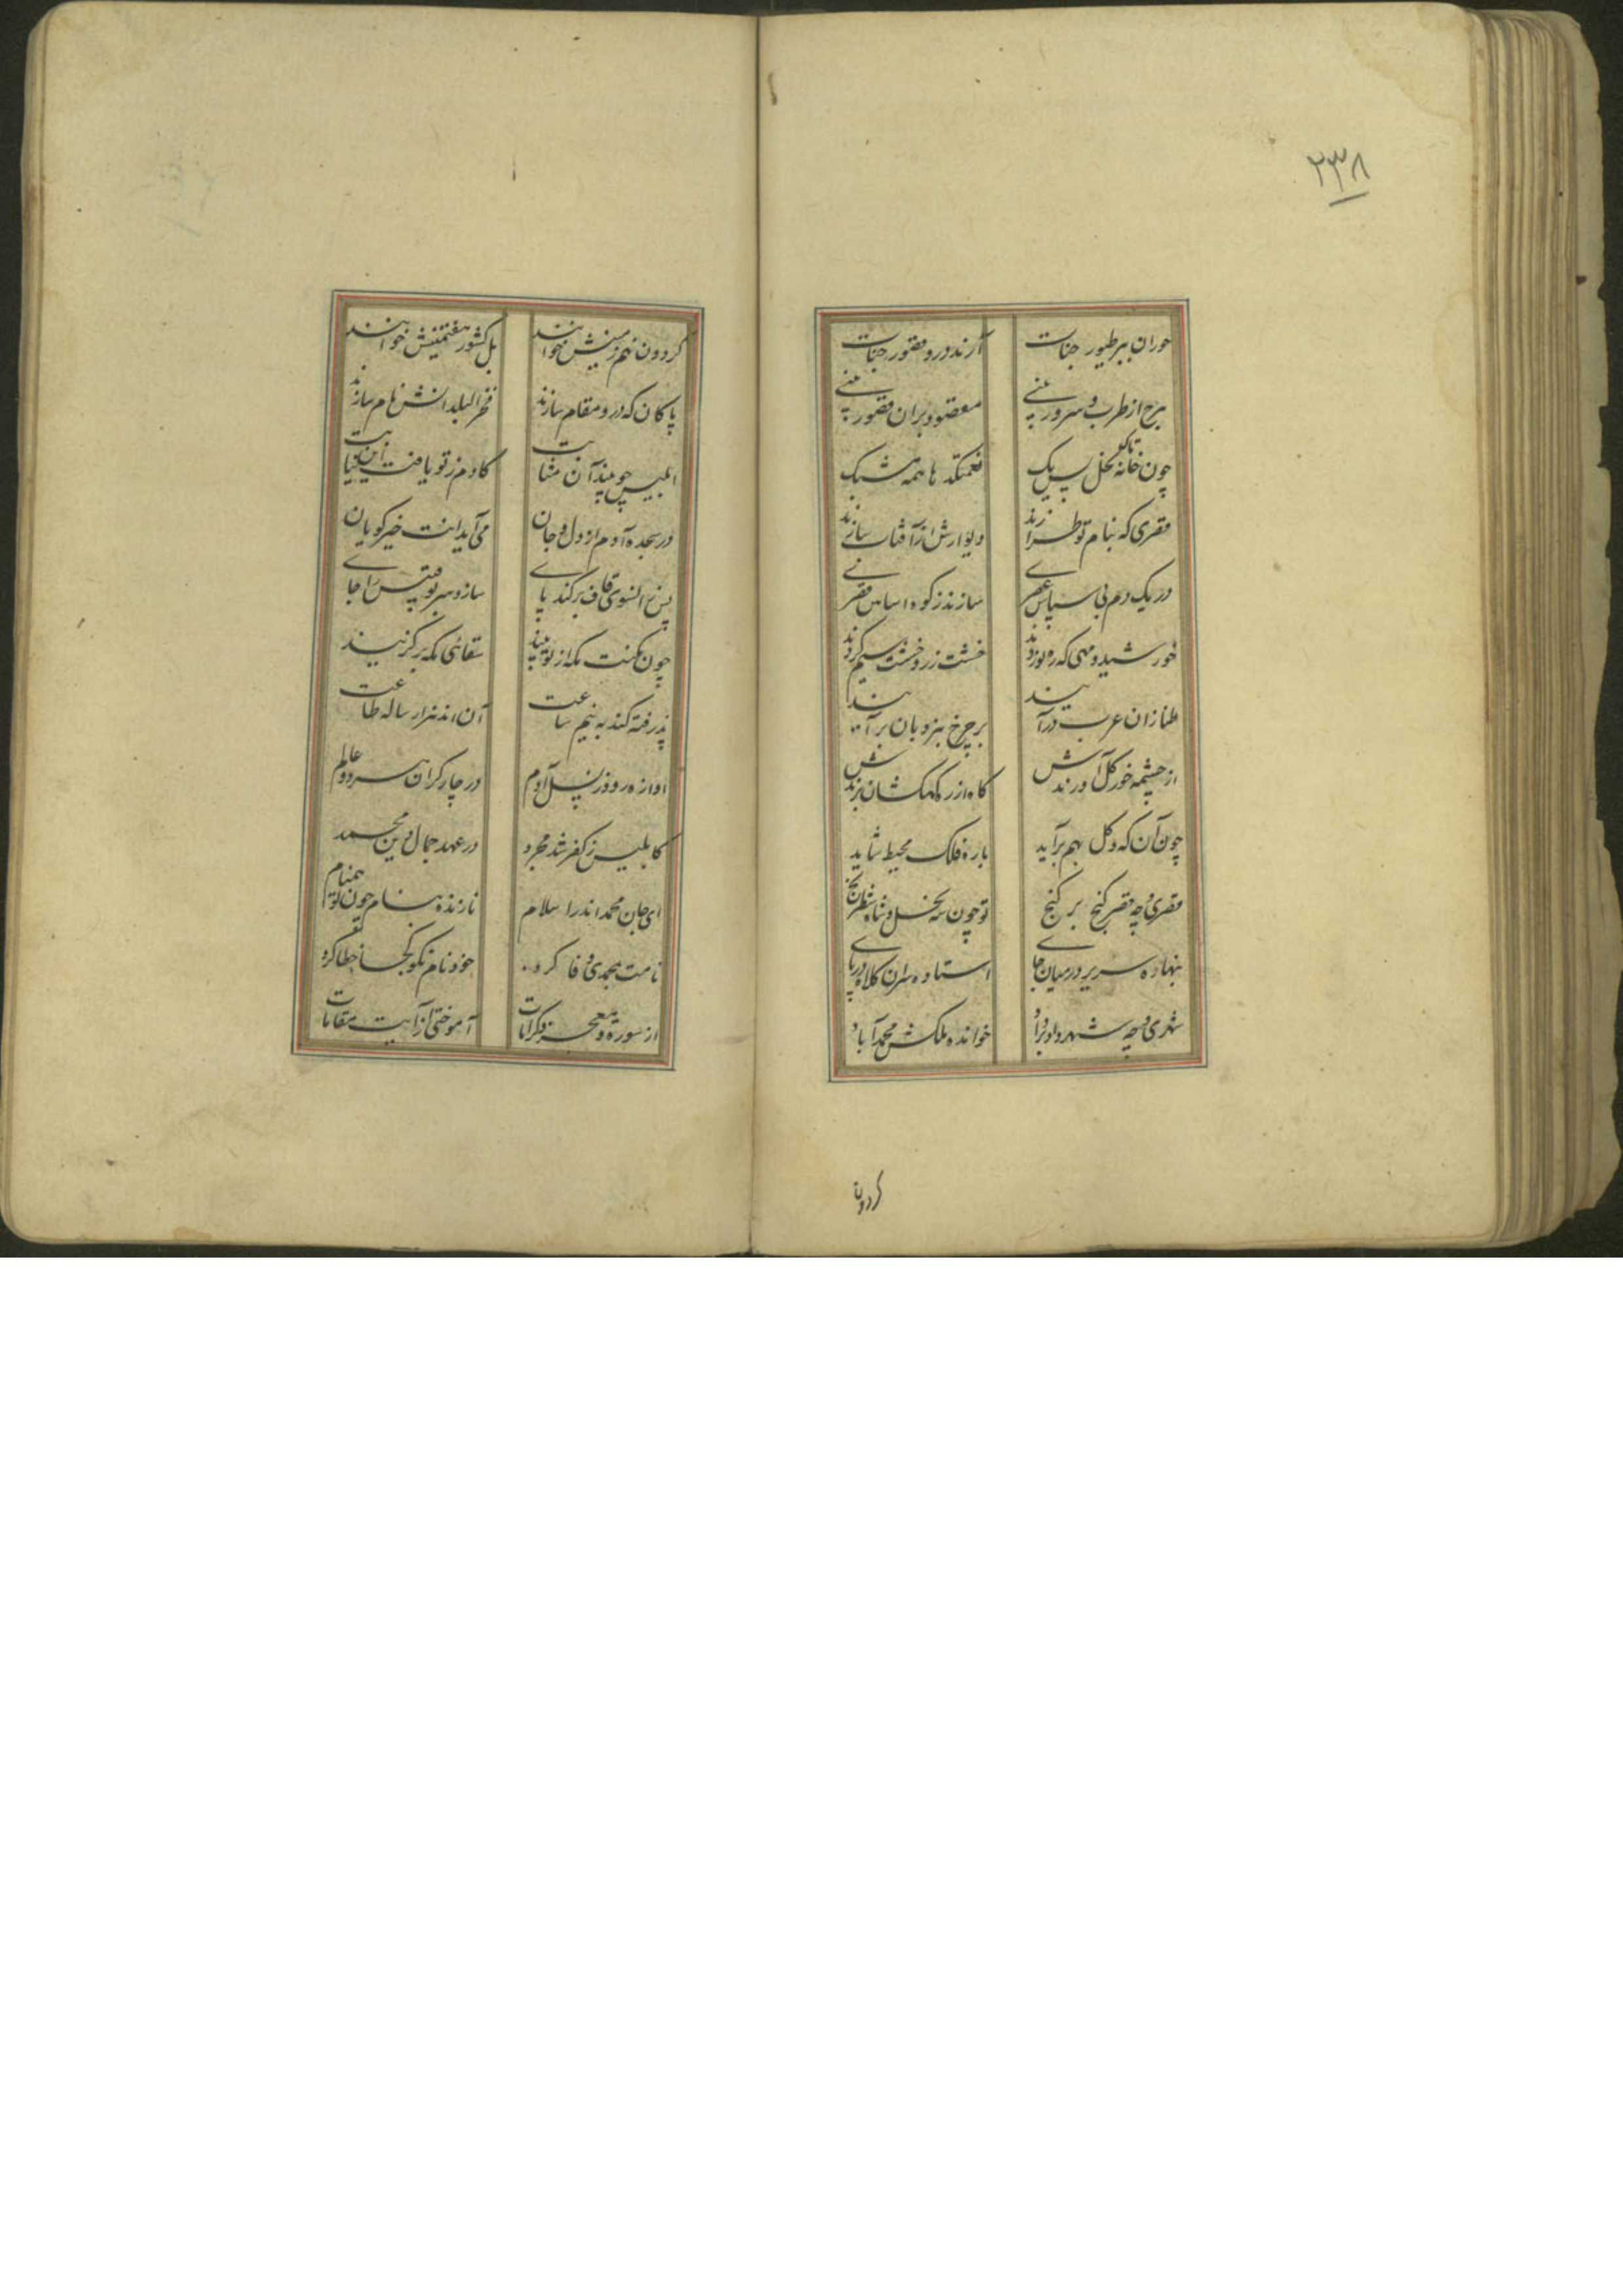 ۲۳۸
حوران ببر طیور جنات آرند درو قصور جنات
برج از طرب و سرور بینی مقصود بران قصور بینی
چون خانه نحل پر یک تا یک نعمتکدها همه مشبک
قصری که بنام تو طرازند دیوارش از آفتاب سازند
در یک دم بی سپاس عصری سازند ز کوه اساس قصری
خورشید و مهی که ره نوردند خشت زر و خشت سیم کردند
طنازان عرب درآیند بر چرخ بنردبان برآیند
از چشمه خور گل آورندش کاه از ره کهکشان برندش
چون آن که و گل بهم برآید باره فلک محیط شاید
قصری و چه قصر گنج بر گنج تو چون شه نحل و شاه شطرنج
بنهاده سریر در میان جای استاده سران کلاه در پای
شهری و چه شهر داد بر داد خوانده ملکش محمد آباد
گردون
گردون نهم زمینش خوانند بل کشور هفتمینش خوانند
پاکان که درو مقام سازند فخر البلدانش نام سازند
ابلیس چو بیند آن مثابت کادم ز تو یافت این نیابت
در سجده آدم از دل و جان می‌آید انت خیر گویان
پس زانسوی قاف برکند پای سازد سر بوقبیس را جای
چون مکنت مکه از تو بیند سقائی مکه برگزیند
پذرفته کند به نیم ساعت آن اند هزار ساله طاعت
آوازه رود ز نسل آدم در چار کران هر دو عالم
کابلیس ز کفر شد مجرد در عهد جمال دین محمد
ای جان محمد اندر اسلام نازنده بنام چون تو همنام
نامت بمحمدی وفا کرد خود نام نکو کجا خطا کرد
از سوره و معجز و کرامات آموختی از آیت مقامات